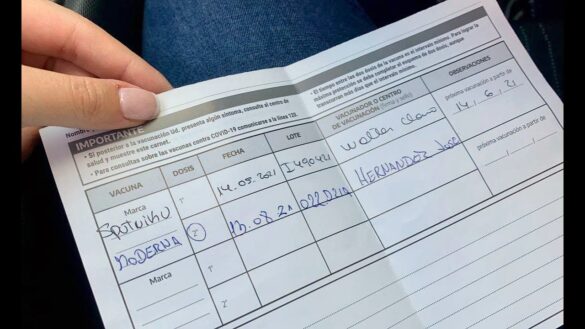 Nombre
IMPORTANTE
• Si posterior a la vacunación Ud. presenta algún síntoma, consulte al centro de
salud y muestre este carnet.
• Para consultas sobre las vacunas contra COVID-19 comunicarse a la línea 120.
• El tiempo entre las dos dosis de la vacuna es el intervalo mínimo. Para lograr la
máxima protección se debe completar el esquema de dos dosis, aunque
transcurran más días que el intervalo mínimo.
VACUNA DOSIS FECHA LOTE VACUNADOR O CENTRO DE VACUNACIÓN (firma y sello) OBSERVACIONES
Marca
Sputnik V 1° 14.05.2021 I490421 Walter próxima vacunación a partir de
14, 6, 21
MODERNA 2° 13.08.21 022D21A HERNANDEZ Jose próxima vacunación a partir de
Marca 1°
2°